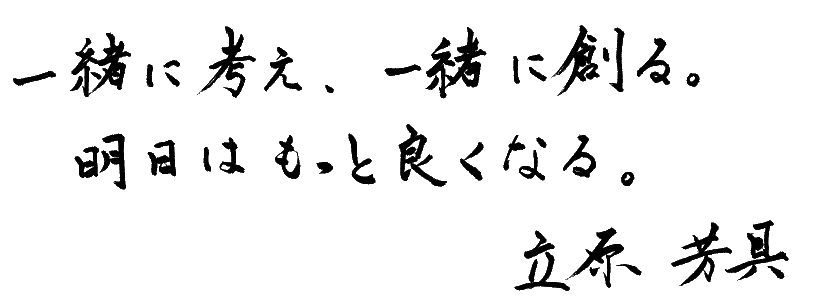 一緒に考え、一緒に創る。
明日はもっと良くなる。
立原 芳具